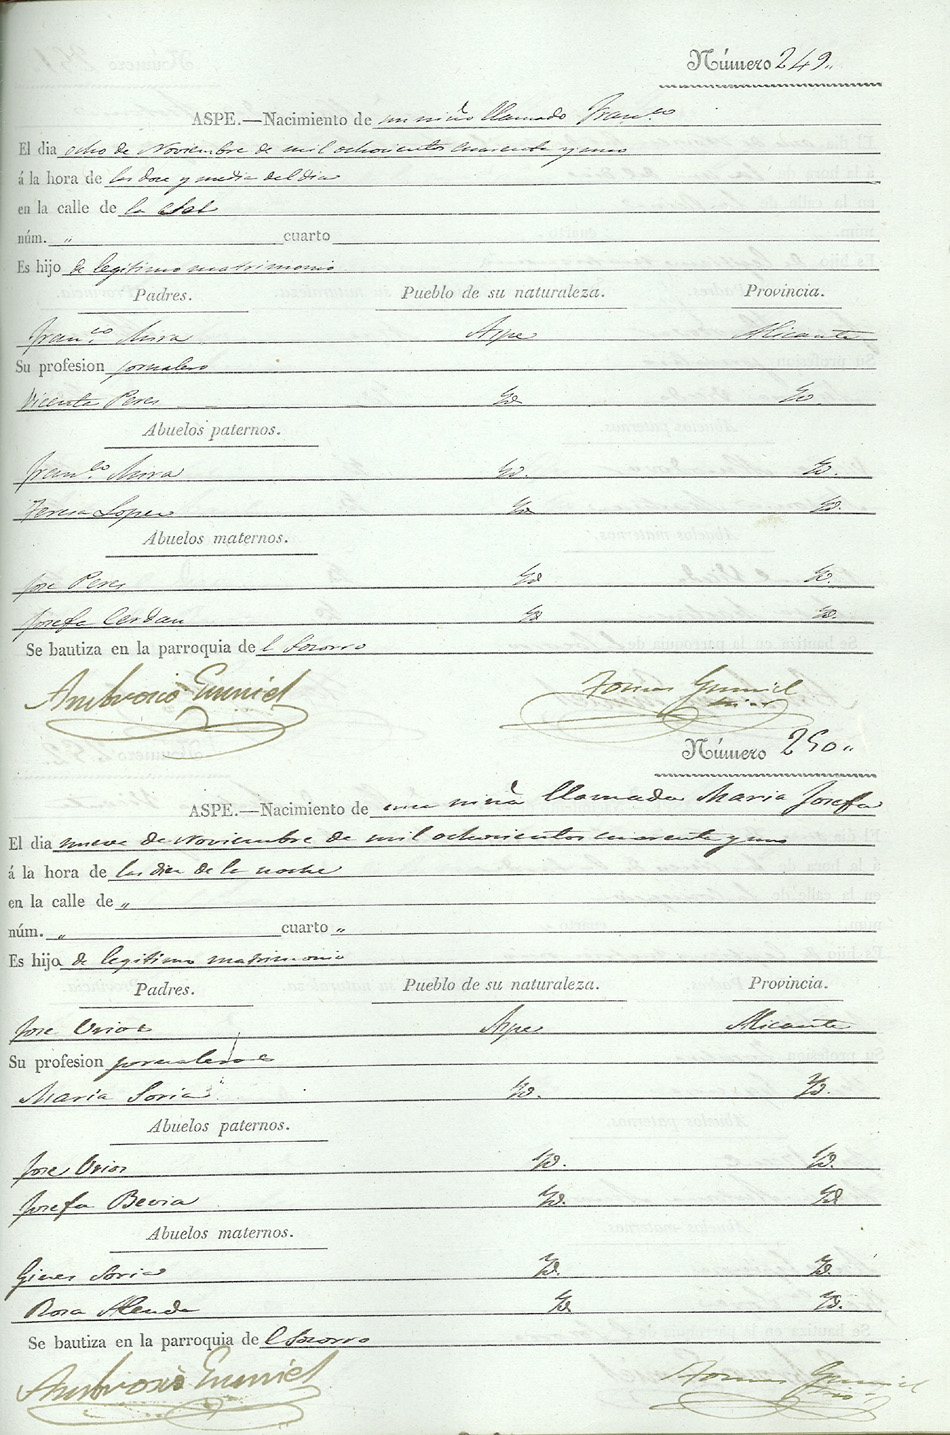 Número 249..
ASPE.—Nacimiento de un niño llamado Fran.co
El dia ocho de Noviembre de mil ochocientos cuarenta y uno
á la hora de las doce y media del dia
en la calle de la
núm. „ cuarto
Es hijo de legitimo matrimonio
Padres. Pueblo de su naturaleza. Provincia.
Fran.co Mira Aspe Alicante
Su profesion jornalero
Vicenta Peres Yd. Yd.
Abuelos paternos.
Fran.co Mira Yd. Yd.
Teresa Lopes Yd. Yd.
Abuelos maternos.
Jose Peres Yd. Yd.
Josefa Cerdan Yd. Yd.
Se bautiza en la parroquia del Socorro
Ambrosio Tomas
Número 250..
ASPE.—Nacimiento de una niña llamada Maria Josefa
El dia nueve de Noviembre de mil ochocientos cuarenta y uno
á la hora de las diez de la noche
en la calle de „
núm. „ cuarto „
Es hijo de legitimo matrimonio
Padres. Pueblo de su naturaleza. Provincia.
Jose Aspe Alicante
Su profesion
Maria Soria Yd. Yd.
Abuelos paternos.
Jose Yd. Yd.
Josefa Bevia Yd. Yd.
Abuelos maternos.
Gines Soria Yd. Yd.
Rosa Yd. Yd.
Se bautiza en la parroquia del Socorro
Ambrosio Tomas